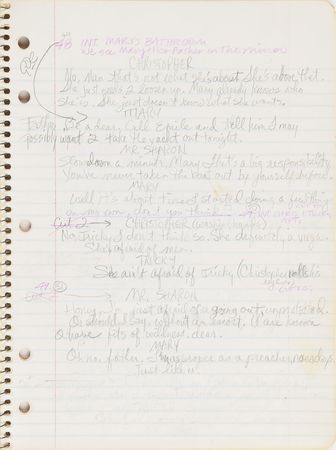 48 INT. MARY'S BATHROOM
We see Mary & Her Father in the mirror
CHRISTOPHER
No, Man that's not what she's about. She's above that.
She just needs 2 loosen up. Mary already knows who
she is. She just doesn't know what she wants.
MARY
Be a dear. Call Emile and tell him I may
possibly want 2 take the yacht out tonight.
MR. SHARON
Slow down a minute, Mary. That's a big responsibility.
You've never taken the boat out by yourself before.
MARY
Well it's about time I started doing a few things
on my own, don't you think
Cut 2 CHRISTOPHER
No, Tricky I don't think so. She definitely a virgin.
She's afraid of men.
TRICKY
She ain't afraid of Tricky (Christopher rolls his
eyes)
49
MR. SHARON
Honey, I'm just afraid of u going out unprotected.
Or should I say, without an escort. U are known
2 have fits of wildness, dear.
MARY
Oh no, father. I'm as proper as a preacher, nowadays.
Just like u.